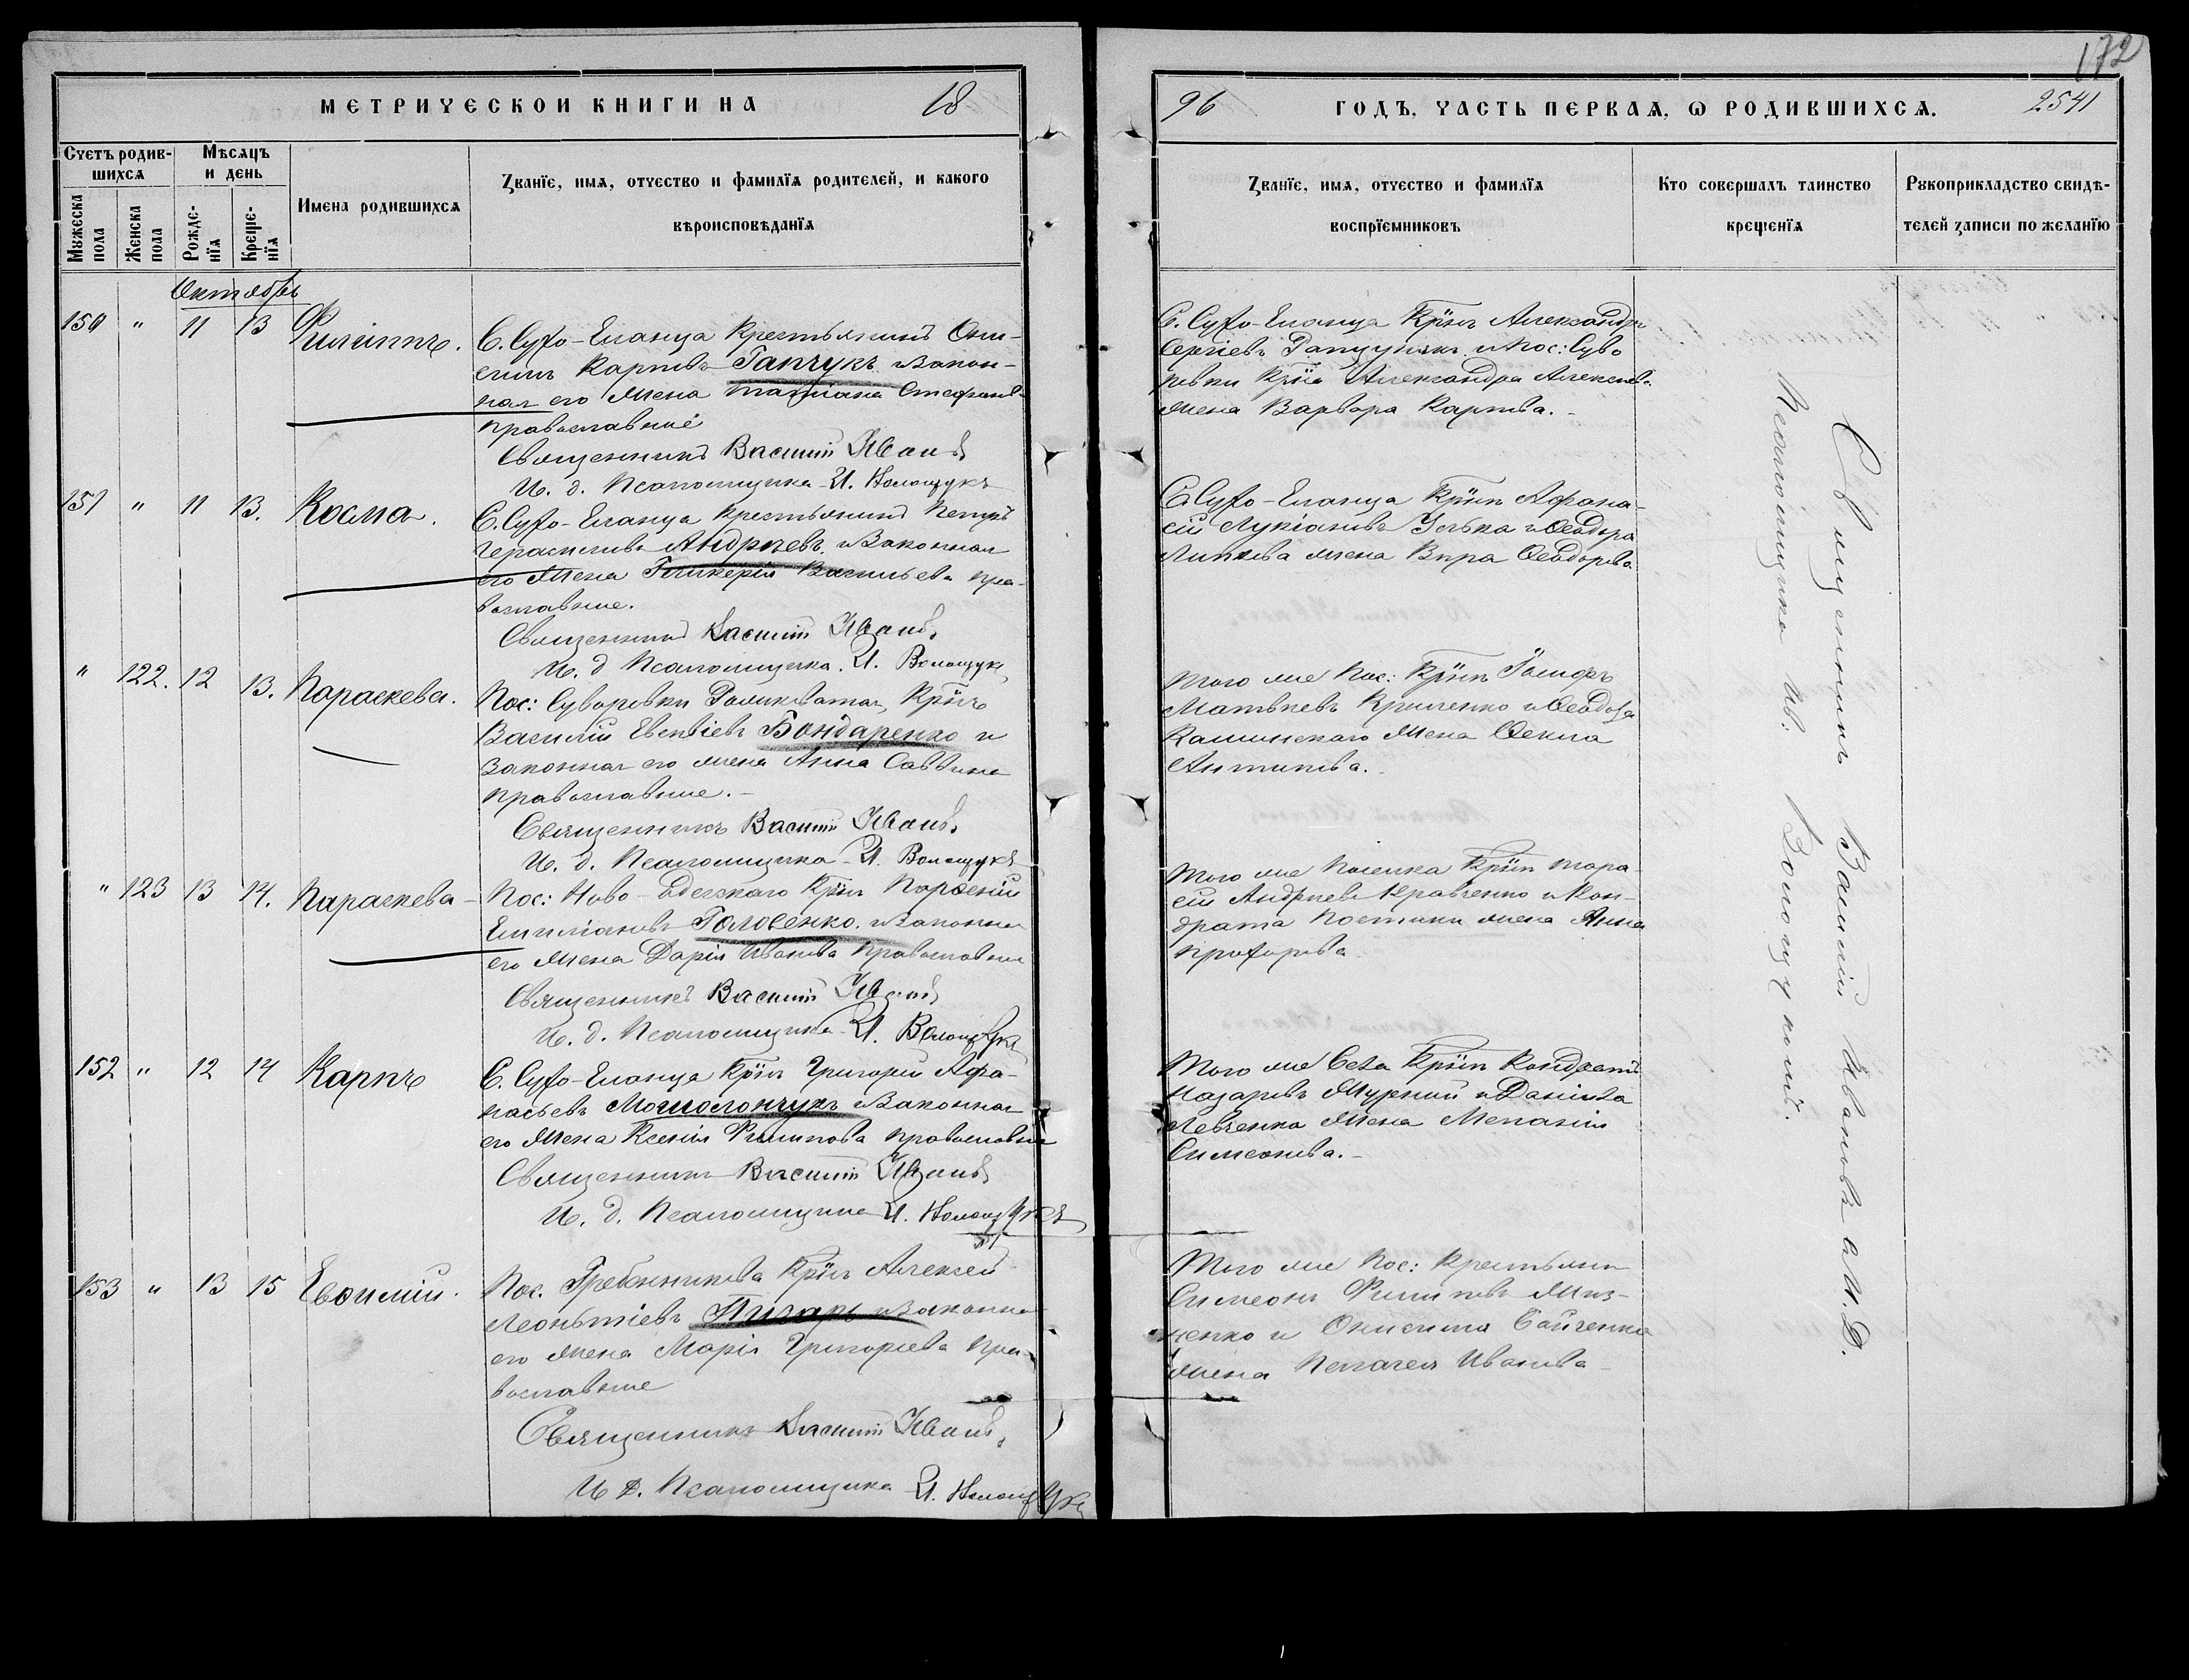 172
МЕТРИЧЕСКОЙ КНИГИ НА 18
96 ГОДЪ, ЧАСТЬ ПЕРВАЯ, Ѡ РОДИВШИХСЯ. 2541
Счетъ родив-
шихся
Мѣсяцъ
и день
Мужеска
пола
Женска
пола
Рожде-
нїя
Креще-
нїя
Имена родившихся
Званїе, имя, отчество и фамилїя родителей, и какого
вѣроисповѣданїя
Званїе, имя, отчество и фамилїя
воспрїемниковъ
Кто совершалъ таинство
крещенїя
Рукоприкладство свидѣ-
телей записи по желанїю
Октябрь
150 " 11 13 Филиппъ.
С. Сухо-Еланца крестьянинъ Они-
симъ Карповъ Гапчукъ и закон-
ная его жена Татіана Стефанов.
православные
Священникъ Василій Ивановъ
И. д. Псаломщика И. Волощукъ
С. Сухо-Еланца Крн͠ъ Александръ
Сергіевъ и пос: Суво
ровки Крн͠а Александра Алексѣева
жена Варвара Карпова. -
151 " 11 13. Косма.
С. Сухо-Еланца крестьянинъ Петръ
Герасимовъ Андрѣевъ и законная
его жена Гликерія Васильева пра-
вославные.
Священникъ Василій Ивановъ
И. д. Псаломщика. И. Волощукъ
С. Сухо-Еланца Крн͠ъ Афана-
сій Лукіановъ Усъка и Ѳеодора
жена Вѣра Ѳеодорова
" 122. 12 13. Параскева.
Пос: Суворовки Крн͠ъ
Василій Евѳиміевъ Бондаренко и
законная его жена Анна Саввина
православные. -
Священникъ Василій Ивановъ
И. д. Псаломщика И. Волощукъ
Того же пос: Крн͠ъ Іосифъ
Матвѣевъ Криленко и Ѳеодора
Калинскаго жена Ѳекла
Антипова.
" 123 13 14. Параскева -
Пос: Ново-Одесскаго Крн͠ъ Парѳеній
Емиліановъ Головенко и законная
его жена Дарія Иванова православные
Священникъ Василій Ивановъ
И. д. Псаломщика И. Волощукъ
Того же поселка Крн͠ъ Тара-
сій Андрѣевъ Кравченко и Кон-
драта жена Анна
Прохорова
152 " 12 14 Карпъ
С. Сухо-Еланца Крн͠ъ Григорій Афа-
насьевъ и законная
его жена Ксенія Филипова православные
Священникъ Василій Ивановъ
И. д. Псаломщика И. Волощукъ
Того же Села Крн͠ъ Кондратъ
Назаровъ и Даніила
Левченка жена Меланія
Симеонова. -
153 " 13 15 Евѳимій.
Пос. Гребенникова Крн͠ъ Алексѣй
Леонтіевъ Писарь и законная
его жена Марія Григоріева пра-
вославные
Священникъ Василій Ивановъ
И Д. Псаломщика И. Волощукъ
Того же пос: Крестьянинъ
Симеонъ Филиповъ Миз-
ченко и Онисима Бойченка
жена Пелагея Иванова -
Священникъ Василій Ивановъ и И. Д.
Псаломщика Ив: Волощукъ.